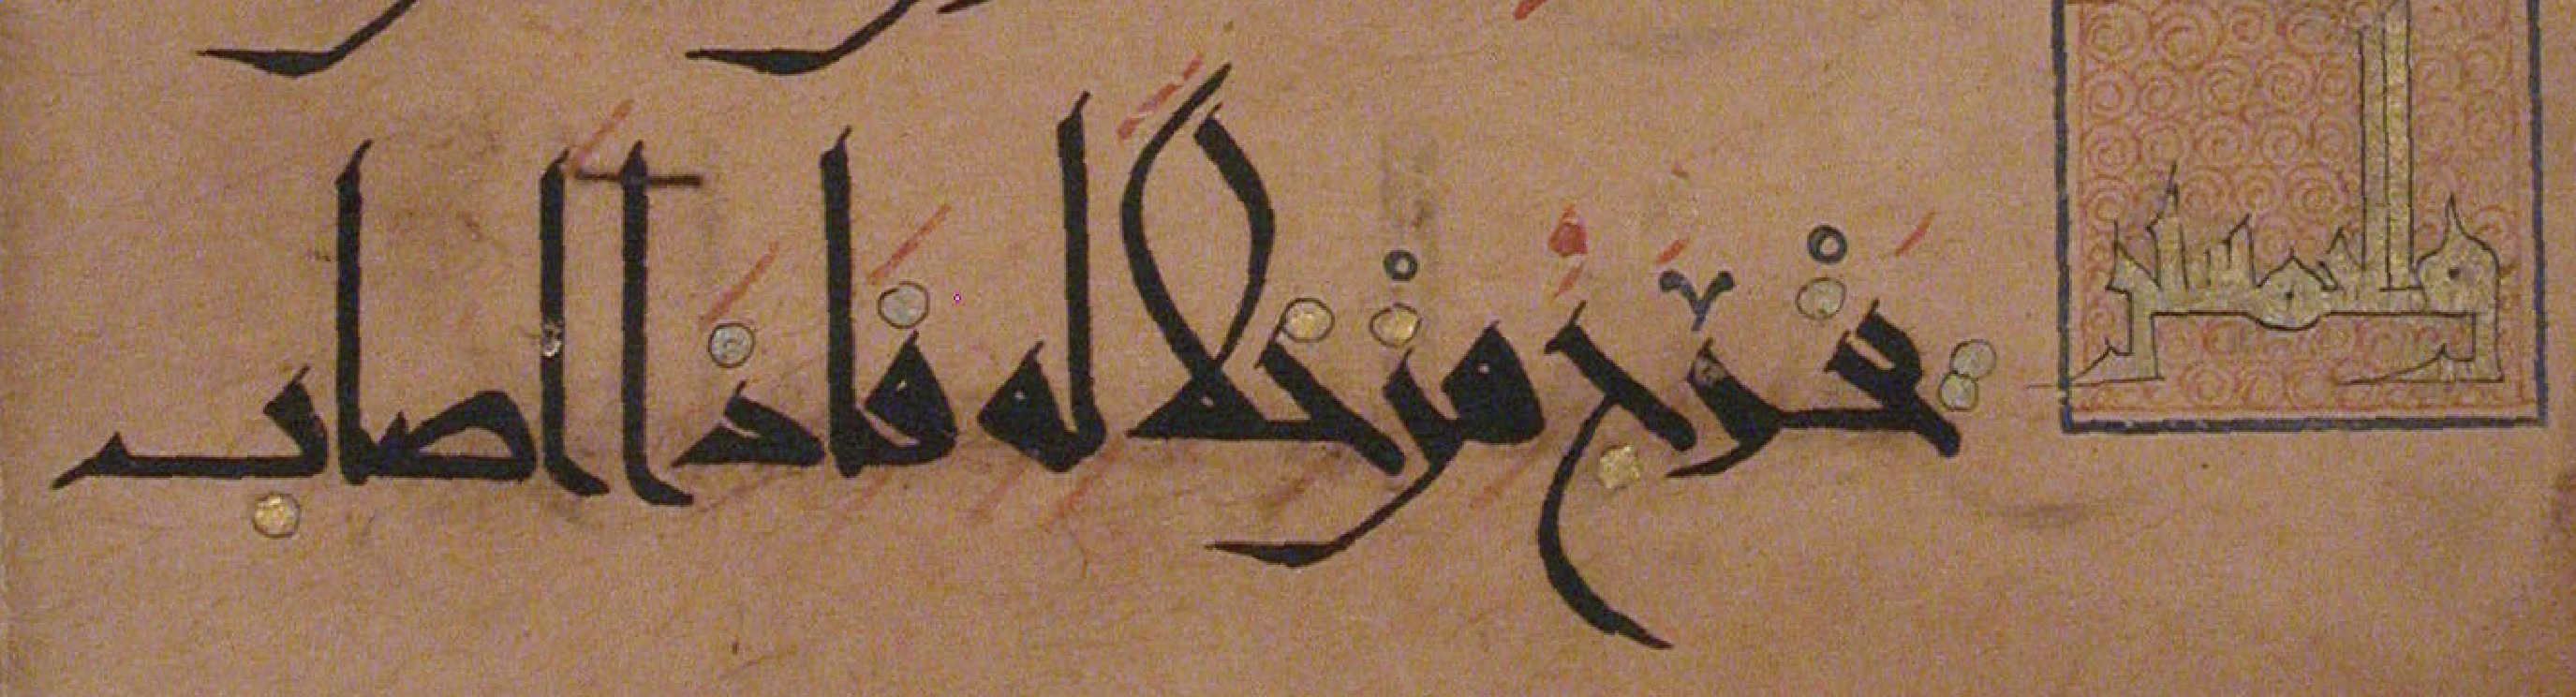 يَخْرُجُ مِنْ خِلَالِهِ فَإِذَا أَصَابَ